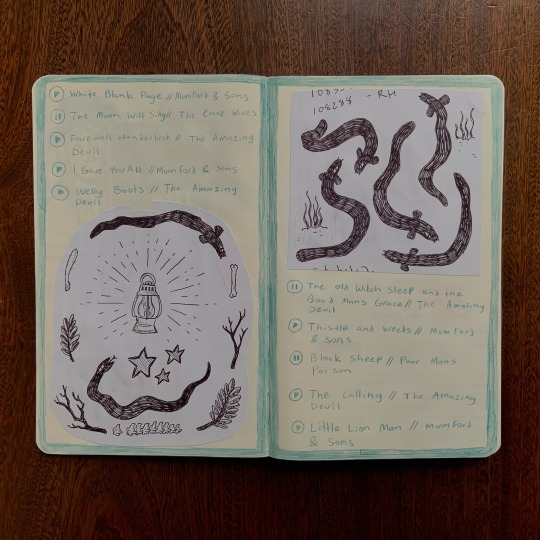 White Blank Page // Mumford & Sons
The Moon Will Sing // The Crane Wives
Farewell Wanderlust // The Amazing
Devil
I Gave You All // Mumford & Sons
Welly Boots // The Amazing
Devil
- RH
108288
The Old Witch Sleep and the
Good Mans Grace // The Amazing
Devil
Thistle and Weeds // Mumford
& Sons
Black Sheep // Poor Mans
Poison
The Calling // The Amazing
Devil
Little Lion Man // Mumford
& Sons